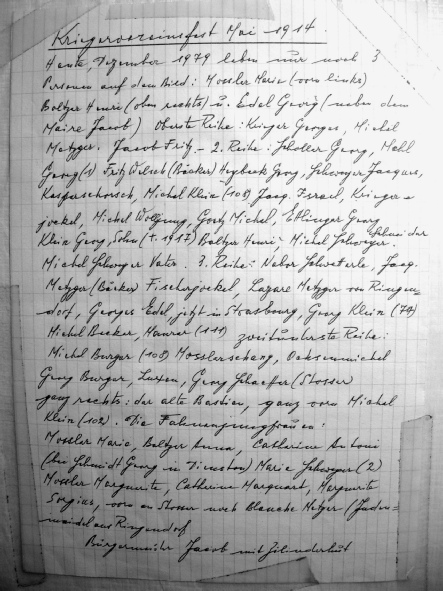 Kriegervereinsfest Mai 1914.
Heute, Dezember 1979 leben nur noch 3
Personen auf dem Bild: Mossler Marie (vorn links)
Boltzer Henri (oben rechts) u. Edel Georg (neben dem
Maire Jacob) Oberste Reihe: Krieger Georges, Michel
Metzger. Jacob Fritz - 2. Reihe: Scholler Georg, Mehl
Georg (1) Fritz Welsch (Bäcker) Heybeck Georg, Schweyer Jacques,
Kasperschorsch, Michel Klein (108) Jacq. Israel, Krieger=
jockel, Michel Wolfgung, Goetz Michel, Ettinger Georg
Klein Georg, Sohn (+ 1917) Boltzer Henri; Michel Schweyer. Schneider
Michel Schweyer Vater. 3. Reihe: Nabor Schweterle, Jacq.
Metzger (Bäcker) Fischerjockel, Lazare Metzger von Ringen=
dorf, Georges Edel, jetzt in Strasbourg, Georg Klein (74)
Michel Becker, Maurer (111) zweitunterste Reihe:
Michel Burger (108) Mosslerschang, Ochsenmichel
Georg Burger, Luxen, Georg Schaefer (Stosser)
ganz rechts: der alte Bastien, ganz vorn Michel
Klein (102). Die Fahnenjungfrauen:
Mossler Marie, Boltzer Anna, Catherine Antoni
(bei Schmidt Georg in Diensten) Marie Schweyer (2)
Mossler Marguerite, Catherine Marquart, Marguerite
Sorgius, vorn am Stosser noch Blanche Metzger (Juden=
maidel aus Ringendorf
Bürgermeister Jacob mit Zilinderhut